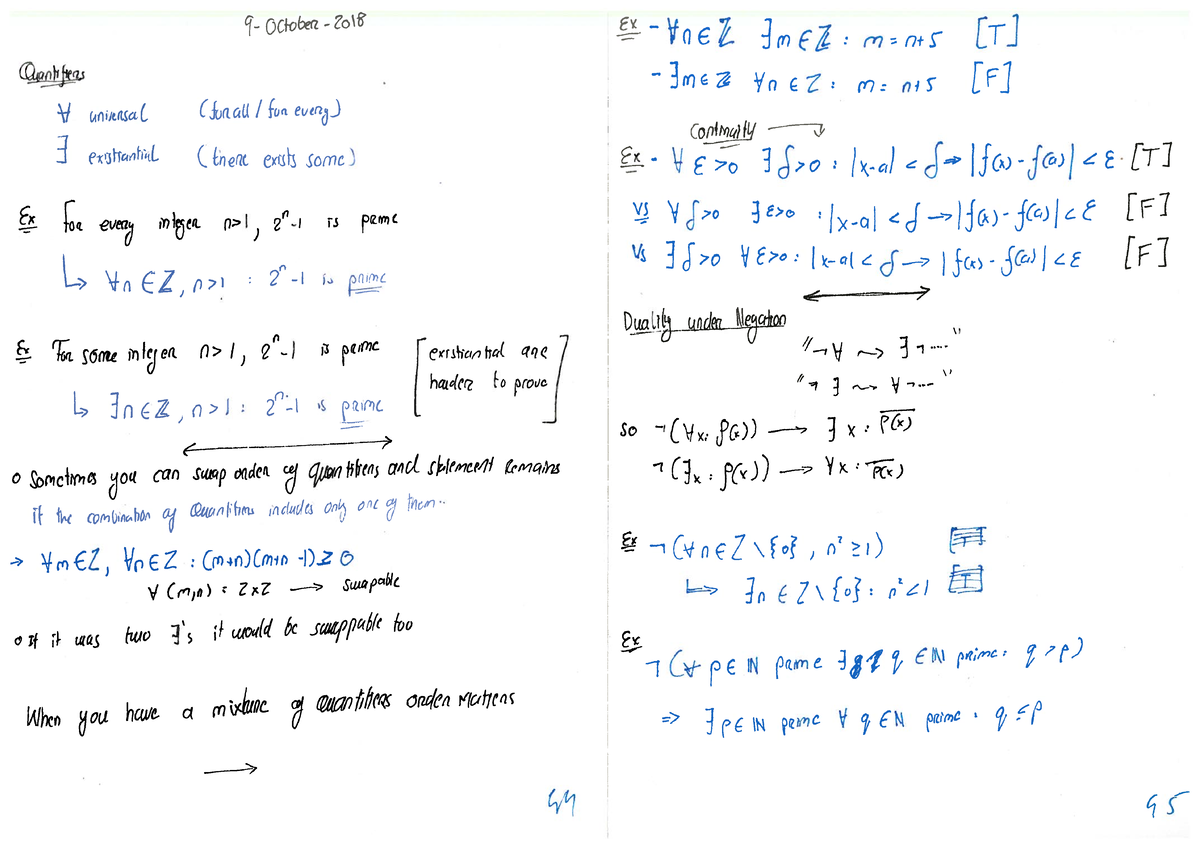 9-October-2018
Quantifiers
∀ universal (for all / for every)
∃ existiantial (there exists some)
Ex For every integer n>1, 2ⁿ-1 is prime
↳ ∀n∈ℤ, n>1 : 2ⁿ-1 is prime
Ex For some integer n>1, 2ⁿ-1 is prime [existiantial are harder to prove]
↳ ∃n∈ℤ, n>1 : 2ⁿ-1 is prime
o Sometimes you can swap order of quantifiers and statement remains
if the combination of Quantifiers includes only one of them..
→ ∀m∈Z, ∀n∈Z : (m+n)(m+n-1)≥0
∀(m,n) = Z×Z → swapable
o If it was two ∃'s it would be swappable too
When you have a mixture of Quantifiers order matters
→
44
Ex - ∀n∈ℤ ∃m∈ℤ : m=n+5 [T]
- ∃m∈ℤ ∀n∈Z : m= n+5 [F]
Continuity
Ex - ∀ε>0 ∃δ>0 : |x-a| < δ → |f(x)-f(a)| < ε. [T]
vs ∀δ>0 ∃ε>0 : |x-a| < δ → |f(x)-f(a)| < ε [F]
vs ∃δ>0 ∀ε>0 : |x-a| < δ → |f(x)-f(a)| < ε [F]
Duality under Negation
"¬∀ ⇝ ∃¬...."
"¬∃ ⇝ ∀¬...."
so ¬(∀x: P(x)) → ∃x : P̅(̅x̅)̅
¬(∃x : P(x)) → ∀x : P̅(̅x̅)̅
Ex ¬(∀n∈Z\{0}, n²≥1)
↳ ∃n∈Z\{0} : n²<1
Ex
¬(∀p∈ℕ prime ∃ q∈ℕ prime: q>p)
⇒ ∃p∈ℕ prime ∀q∈N prime : q≤p
45